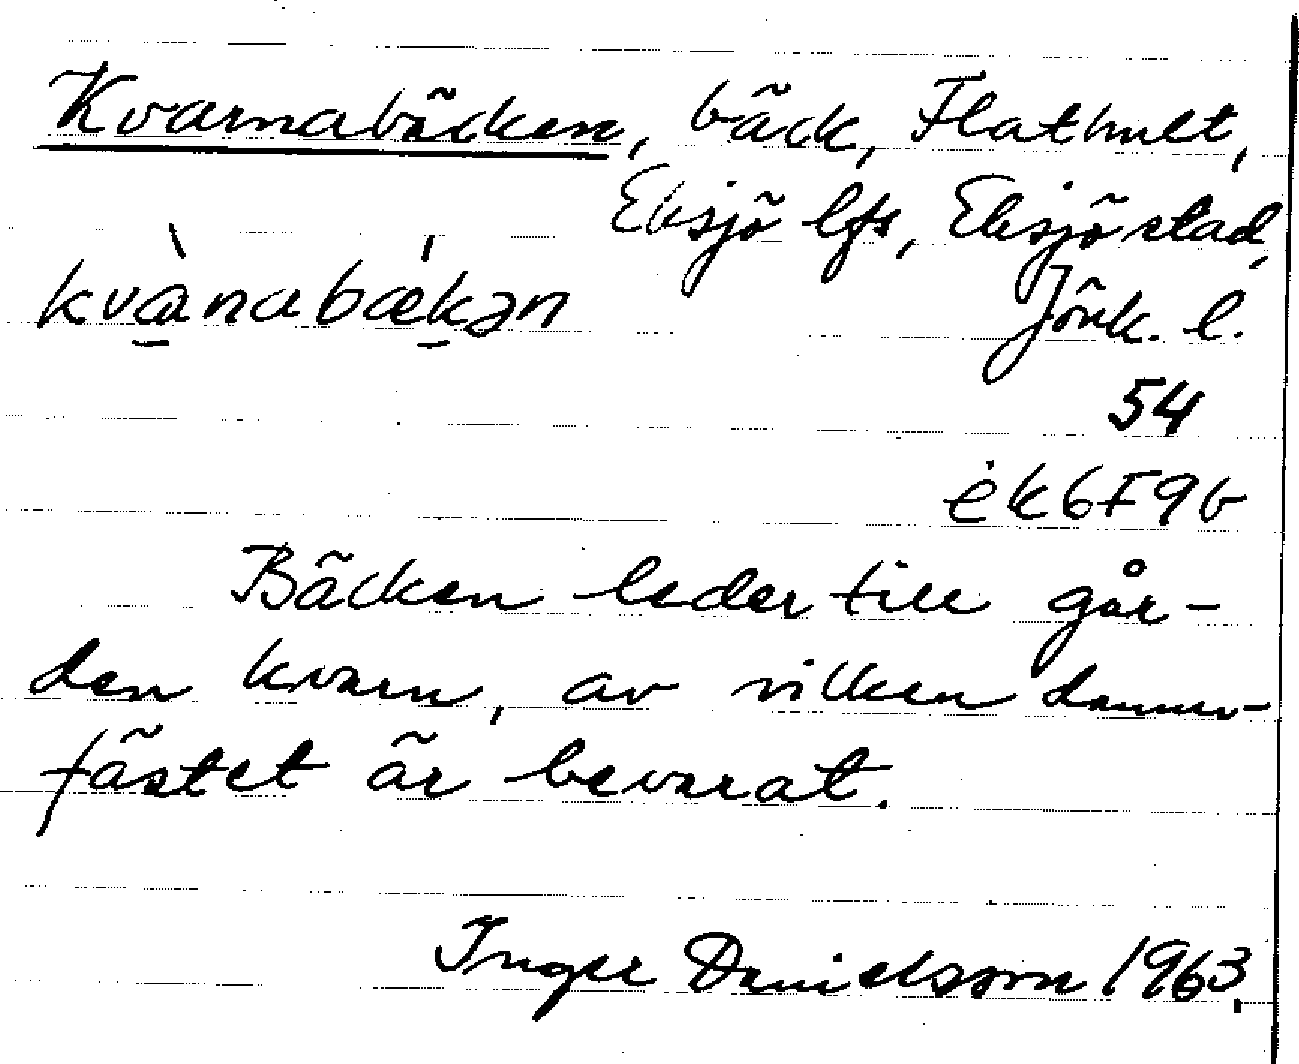 Kvarnabäcken, bäck, Flathult,
Eksjö lfs, Eksjö stad,
kvànabækən
Jönk. l.
54
ek 6F9b
Bäcken leder till går-
den kvarn, av vilken damm-
fästet är bevarat.
Inger Danielsson 1963.